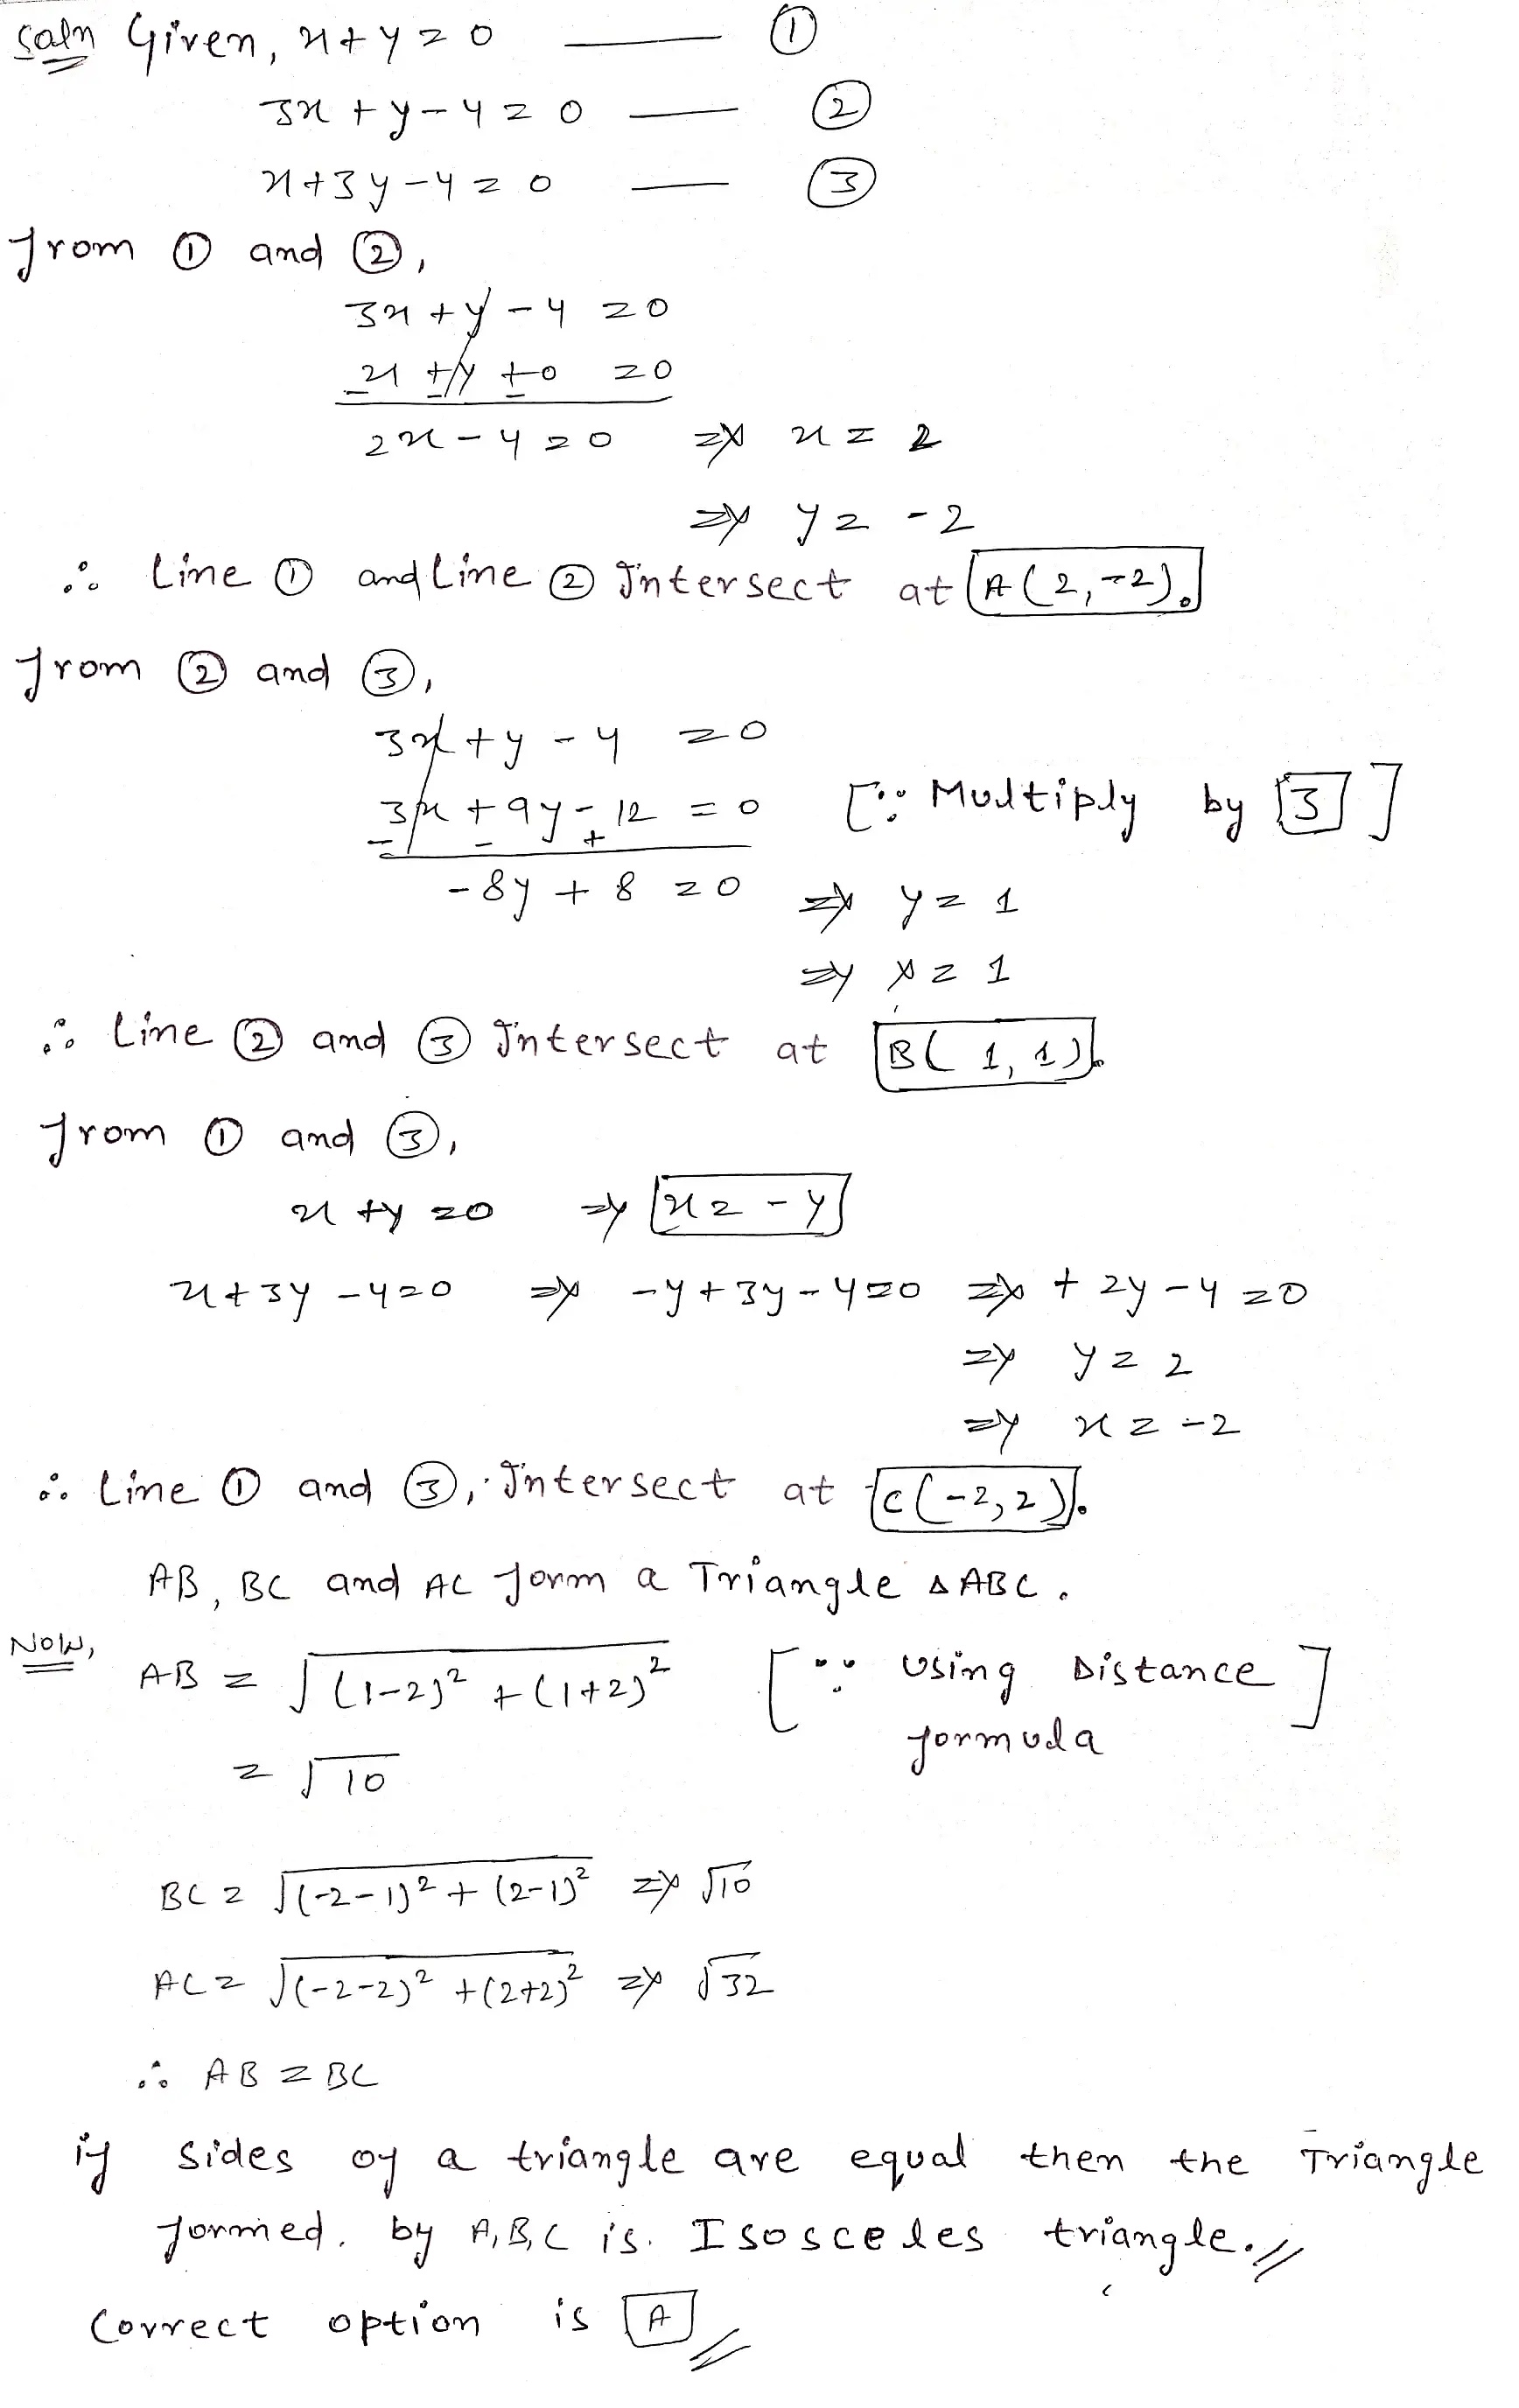 Soln Given, x + y = 0 —— ①
3x + y - 4 = 0 —— ②
x + 3y - 4 = 0 —— ③
from ① and ②,
3x + y - 4 = 0
x + y + 0 = 0
- - -
2x - 4 = 0 => x = 2
=> y = -2
∴ Line ① and Line ② Intersect at A(2, -2).
from ② and ③,
3x + y - 4 = 0
3x + 9y - 12 = 0 [∵ Multiply by 3]
- - +
-8y + 8 = 0 => y = 1
=> x = 1
∴ Line ② and ③ Intersect at B(1, 1).
from ① and ③,
x + y = 0 => x = -y
x + 3y - 4 = 0 => -y + 3y - 4 = 0 => + 2y - 4 = 0
=> y = 2
=> x = -2
∴ Line ① and ③, Intersect at C(-2, 2).
AB, BC and AC form a Triangle ΔABC.
Now, AB = √(1-2)² + (1+2)² [∵ Using Distance formula]
= √10
BC = √(-2-1)² + (2-1)² => √10
AC = √(-2-2)² + (2+2)² => √32
∴ AB = BC
if sides of a triangle are equal then the Triangle
formed. by A, B, C is. Isosceles triangle.//
Correct option is A //